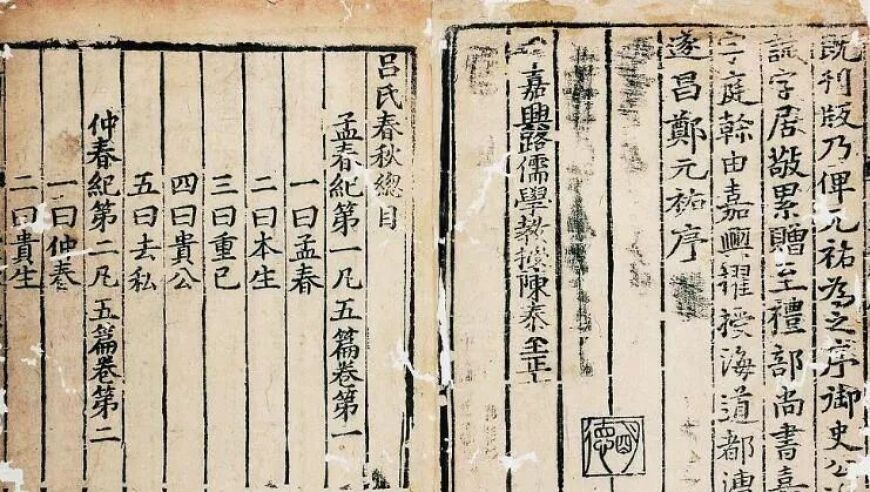 既刊版乃俾元祐為之序御史公
誠字居敬累贈至禮部尚書嘉
字庭榦由嘉興擢授海道都漕
遂昌鄭元祐序
嘉興路儒學教授陳泰至正
呂氏春秋總目
孟春紀第一凡五篇卷第一
一曰孟春
二曰本生
三曰重己
四曰貴公
五曰去私
仲春紀第二凡五篇卷第二
一曰仲春
二曰貴生